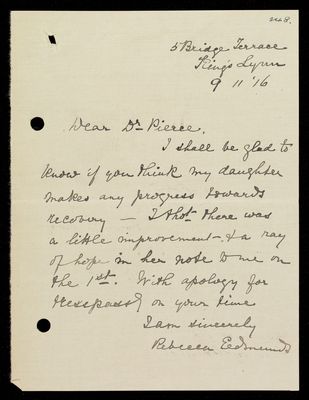 248.
5 Bridge Terrace
King's Lynn
9 11 '16
Dear Dr Pierce,
I shall be glad to
know if you think my daughter
makes any progress towards
recovery — I thot there was
a little improvement - & a ray
of hope in her note to me on
the 1st. With apology for
trespassg on your time
I am sincerely
Rebecca Eedmunds